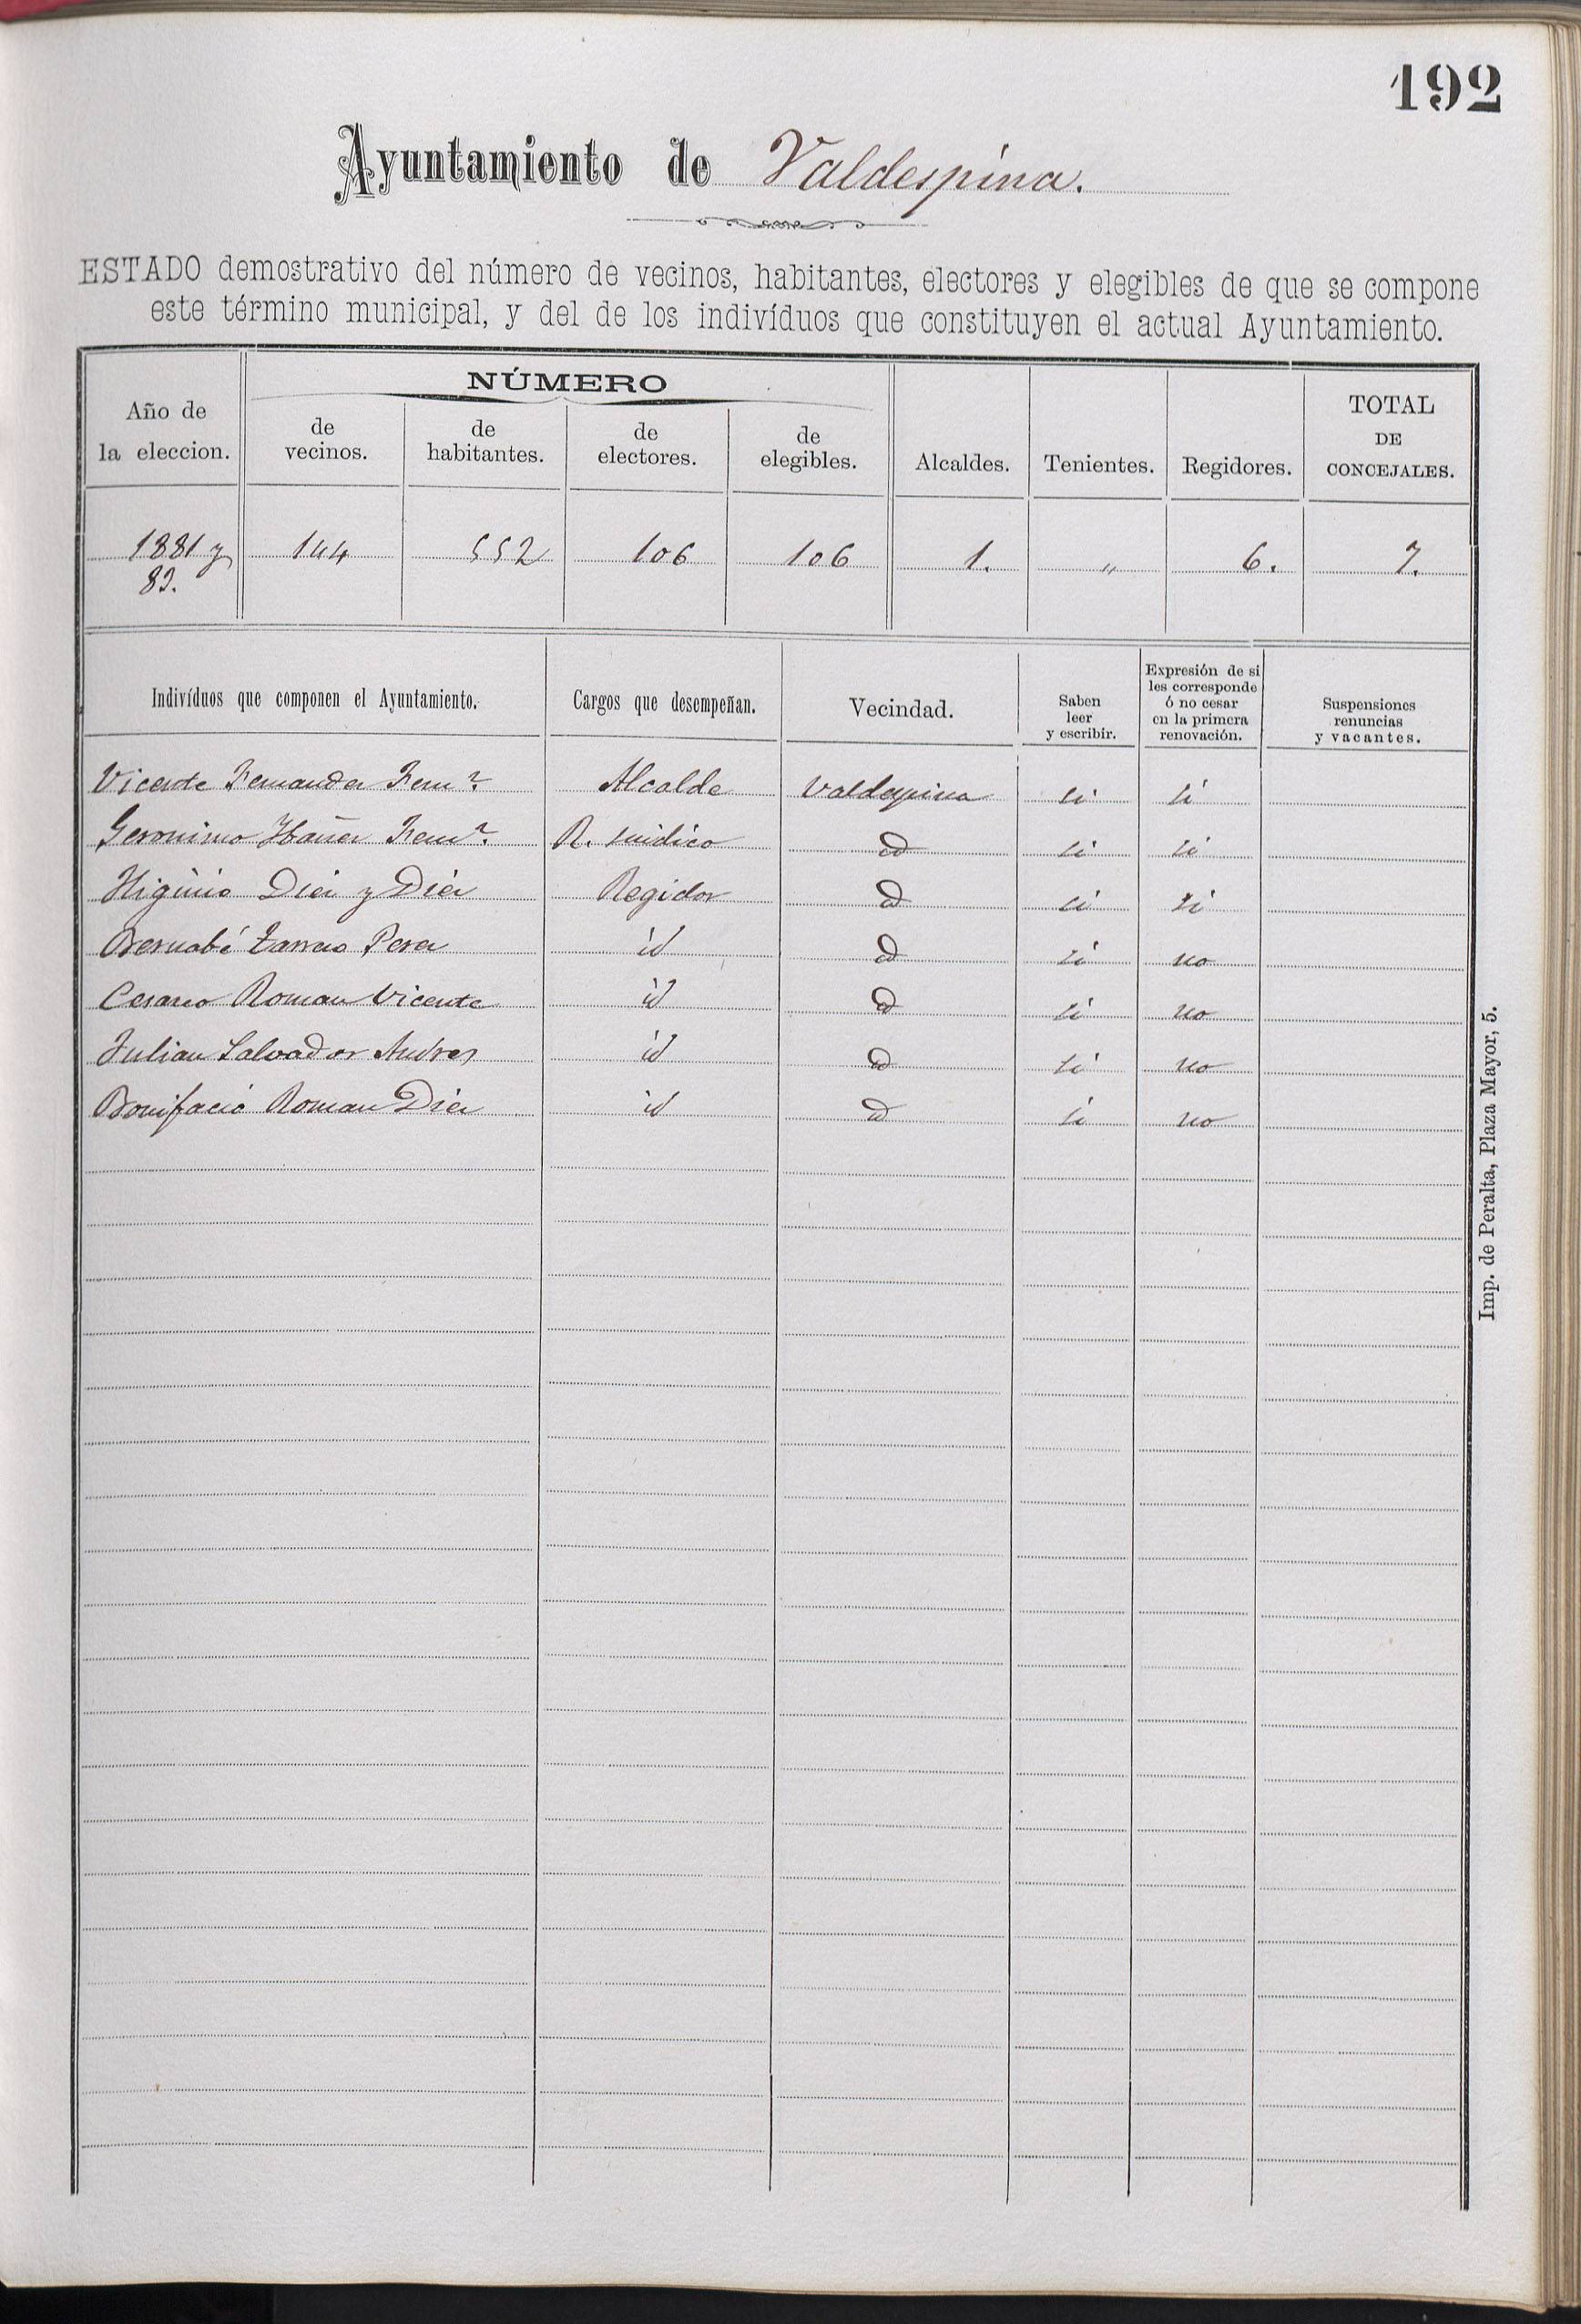 192
Ayuntamiento de Valdespina.
ESTADO demostrativo del número de vecinos, habitantes, electores y elegibles de que se compone
este término municipal, y del de los indivíduos que constituyen el actual Ayuntamiento.
Año de la eleccion.
NÚMERO
de vecinos.
de habitantes.
de electores.
de elegibles.
Alcaldes.
Tenientes.
Regidores.
TOTAL DE CONCEJALES.
1881 y 144 552 106 106 1. " 6. 7.
83.
Indivíduos que componen el Ayuntamiento.
Cargos que desempeñan.
Vecindad.
Saben leer y escribir.
Expresión de si les corresponde ó no cesar en la primera renovación.
Suspensiones renuncias y vacantes.
Vicente Fernandez Fernz. Alcalde Valdespina si si
Geronimo Ibañez Fernz. R. sindico id si si
Higinio Diez y Diez Regidor id si si
Bernabé Perez id id si no
Cesareo Roman Vicente id id si no
Julian Salvador Andres id id si no
Bonifacio Roman Diez id id si no
Imp. de Peralta, Plaza Mayor, 5.